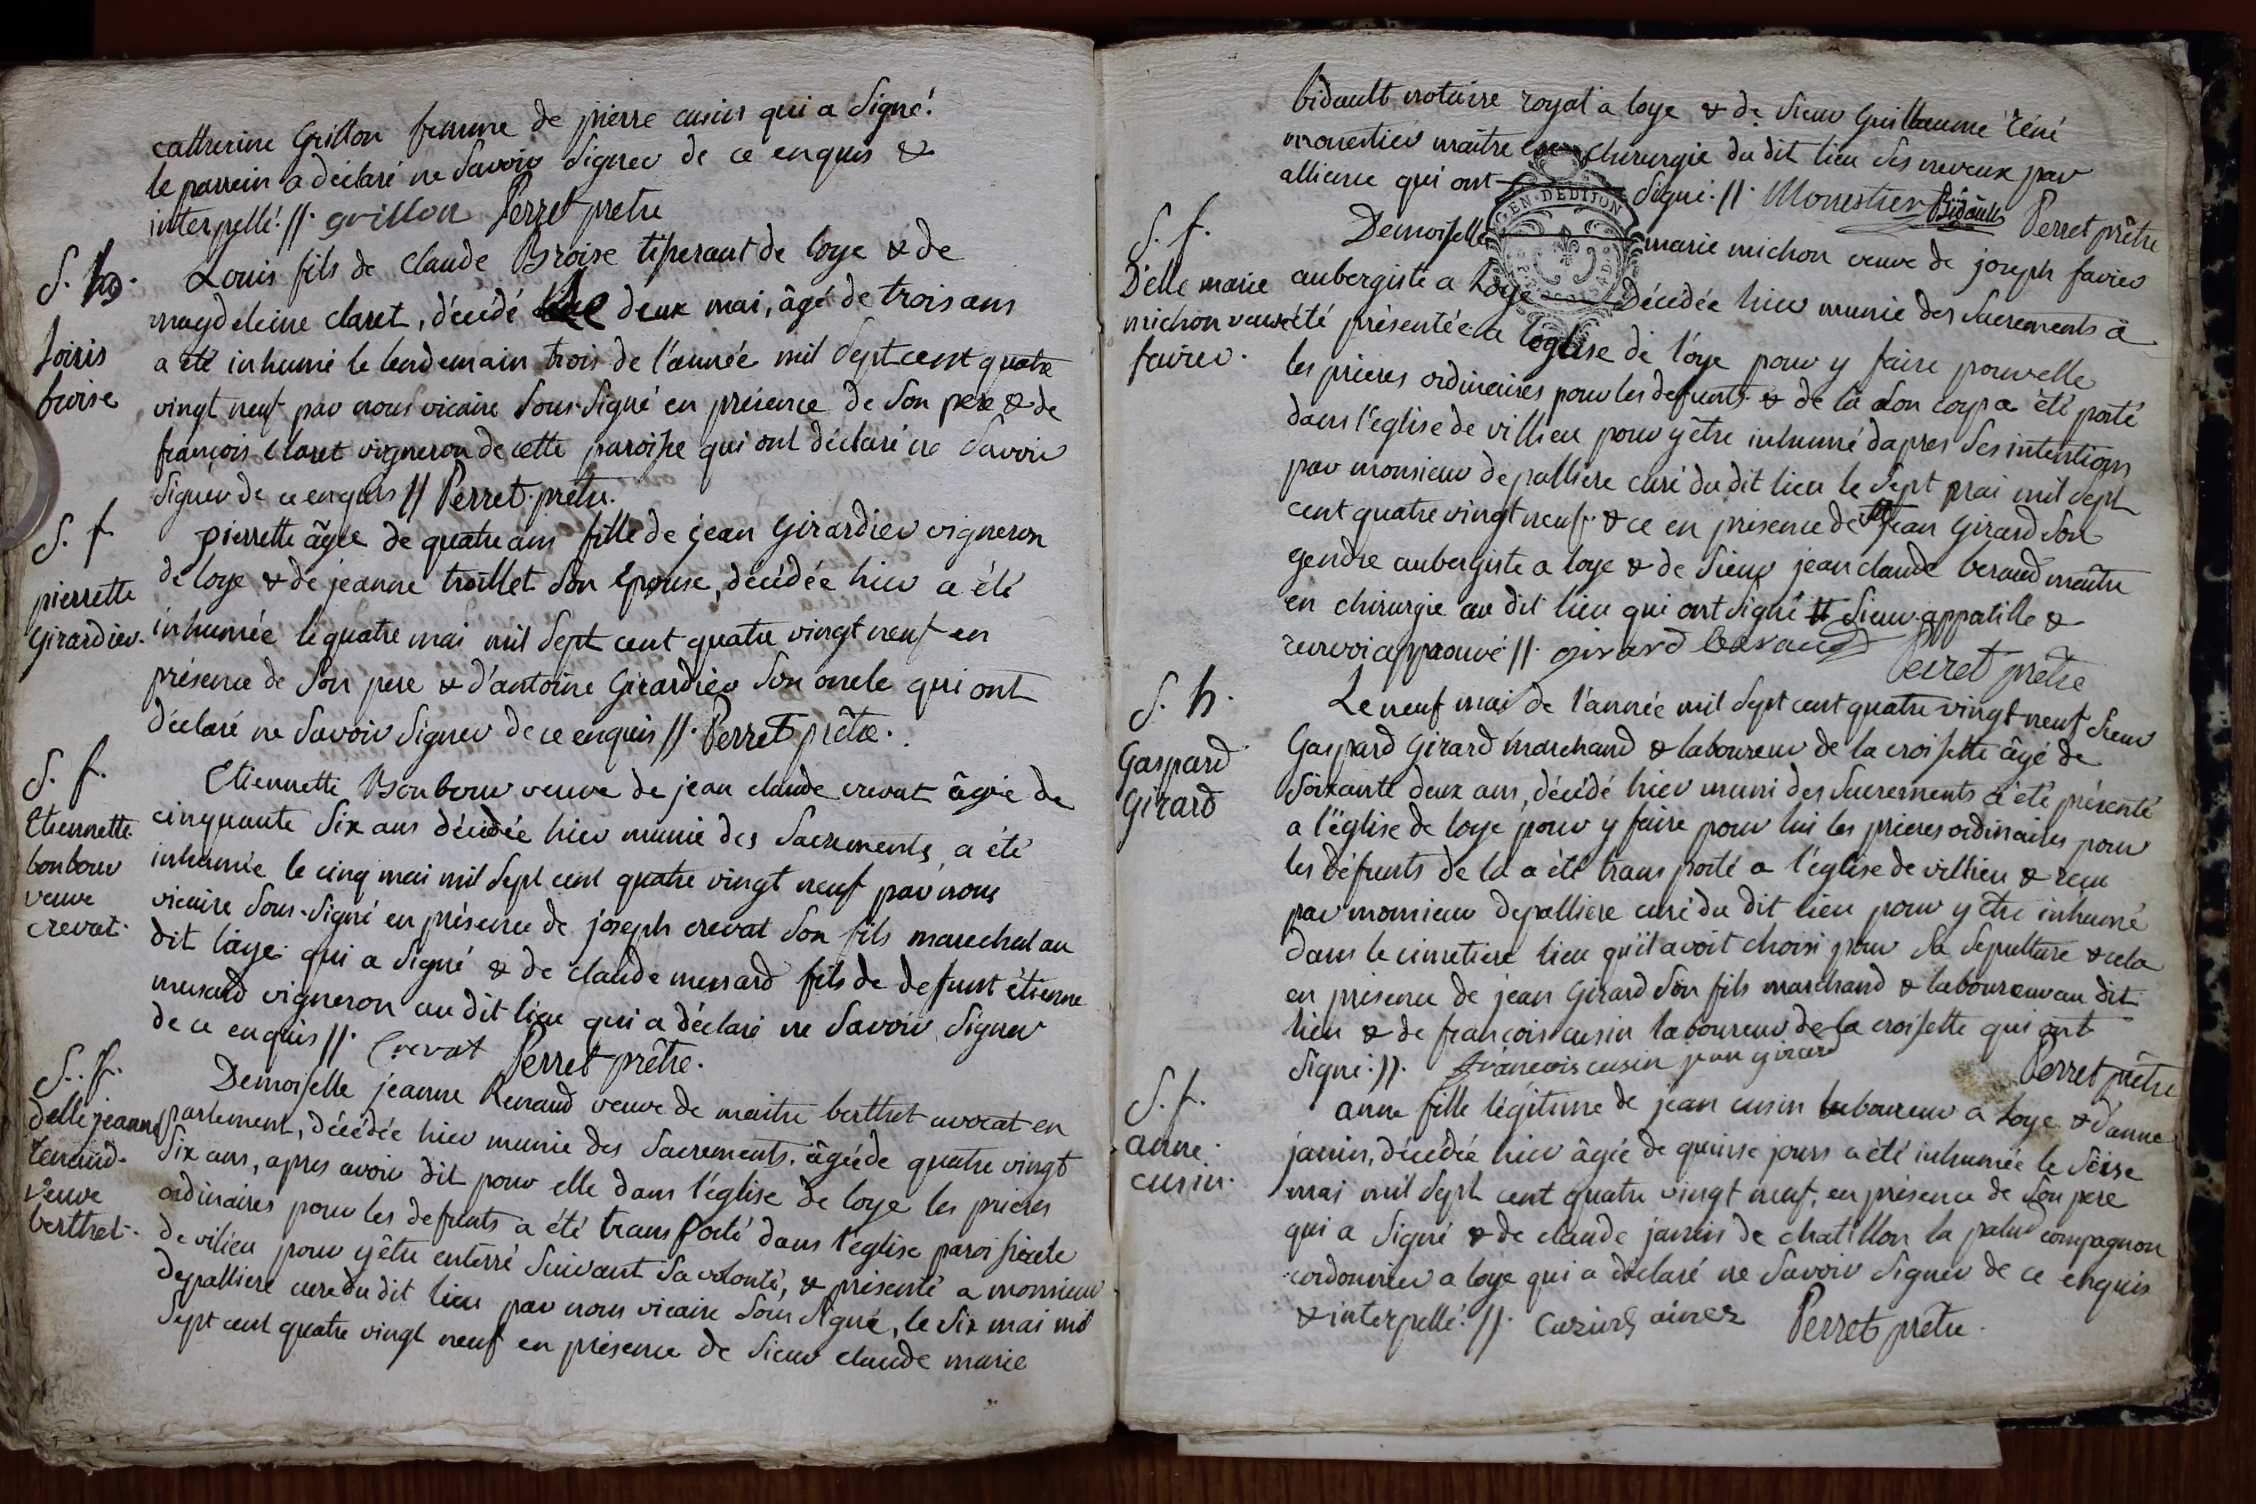 catherine Grillon femme de pierre cusin qui a signé!
le parrein a déclaré ne savoir signer de ce enquis &
interpellé! //. grillon Perret pretre
S. h.
Louis
broise
Louis fils de claude Broise tisserant de loye & de
magdeleine claret, décédé le deux mai, âgé de trois ans
a été inhumé le lendemain trois de l'année mil sept cent quatre
vingt neuf par nous vicaire sous-signé en présence de son pere & de
françois claret vigneron de cette paroisse qui ont déclaré ne savoir
signer de ce enquis // Perret. pretre.
S. f
pierrette
Girardier.
pierrette âgée de quatre ans fille de jean Girardier vigneron
de loye & de jeanne troillet son épouse, décédée hier a été
inhumée le quatre mai mil sept cent quatre vingt neuf en
présence de son pere & d'antoine Girardier son oncle qui ont
déclaré ne savoir signer de ce enquis //. Perret prêtre.
S. f.
Etiennette
bonbour
veuve
crevat.
Etiennette Bonbour veuve de jean claude crevat âgée de
cinquante six ans décédée hier munie des sacrements, a été
inhumée le cinq mai mil sept cent quatre vingt neuf par nous
vicaire sous-signé en présence de joseph crevat son fils marechal au
dit loye qui a signé & de claude menard fils de defunt étienne
menard vigneron au dit lieu qui a déclaré ne savoir signer
de ce enquis //. Crevat Perret prêtre.
S. f.
delle jeanne
renaud.
veuve
berthet.
Demoiselle jeanne Renaud veuve de maitre berthet avocat en
parlement, décédée hier munie des sacrements, âgée de quatre vingt
six ans, apres avoir dit pour elle dans l'église de loye les prieres
ordinaires pour les defunts a été transporté dans l'eglise paroissiale
de vilieu pour y être enterré suivant sa volonté, & présenté a monsieur
depalliere curé du dit lieu par nous vicaire sous signé, le six mai mil
sept cent quatre vingt neuf en présence de sieur claude marie
bidault notaire royal a loye & de sieur Guillaume réné
monestier maître en chirurgie du dit lieu ses neveux par
alliance qui ont signé. //. Monestier Bidault Perret prêtre
EN. DE DIJON
S. f.
D'elle marie
michon veuve
favier.
Demoiselle marie michon veuve de joseph favier
aubergiste a loye décédée hier munie des sacrements a
été présentée a l'eglise de loye pour y faire pour elle
les prieres ordinaires pour les defunts & de là son corp a été porté
dans l'église de villieu pour y être inhumé dapres ses intentions
par monsieur depalliere curé du dit lieu le sept mai mil sept
cent quatre vingt neuf & ce en présence de jean Girard son
gendre aubergiste a loye & de sieur jean claude beraud maître
en chirurgie au dit lieu qui ont signé sieur appatille &
renvoi approuvé //. girard beraud Perret prêtre
S. h.
Gaspard
Girard
Le neuf mai de l'année mil sept cent quatre vingt neuf sieur
Gaspard Girard marchand & laboureur de la croisette âgé de
soixante deux ans, décédé hier muni des sacrements a été présenté
a l'église de loye pour y faire pour lui les prieres ordinaires pour
les défunts de la a été transporté a l'église de villieu & reçu
par monsieur depalliere curé du dit lieu pour y être inhumé
dans le cimetiere lieu qu'il avoit choisi pour sa sepulture & cela
en présence de jean Girard son fils marchand & laboureur au dit
lieu & de françois cusin laboureur de la croisette qui ont
signé. //. francois cusin jean girard
Perret prêtre
S. f.
anne
cusin.
anne fille légitime de jean cusin laboureur a loye & d'anne
janin, décédée hier âgée de quinse jours a été inhumée le seise
mai mil sept cent quatre vingt neuf, en présence de son pere
qui a signé & de claude janin de chatillon la palud compagnon
cordonnier a loye qui a déclaré ne savoir signer de ce enquis
& interpellé. //. Perret pretre.